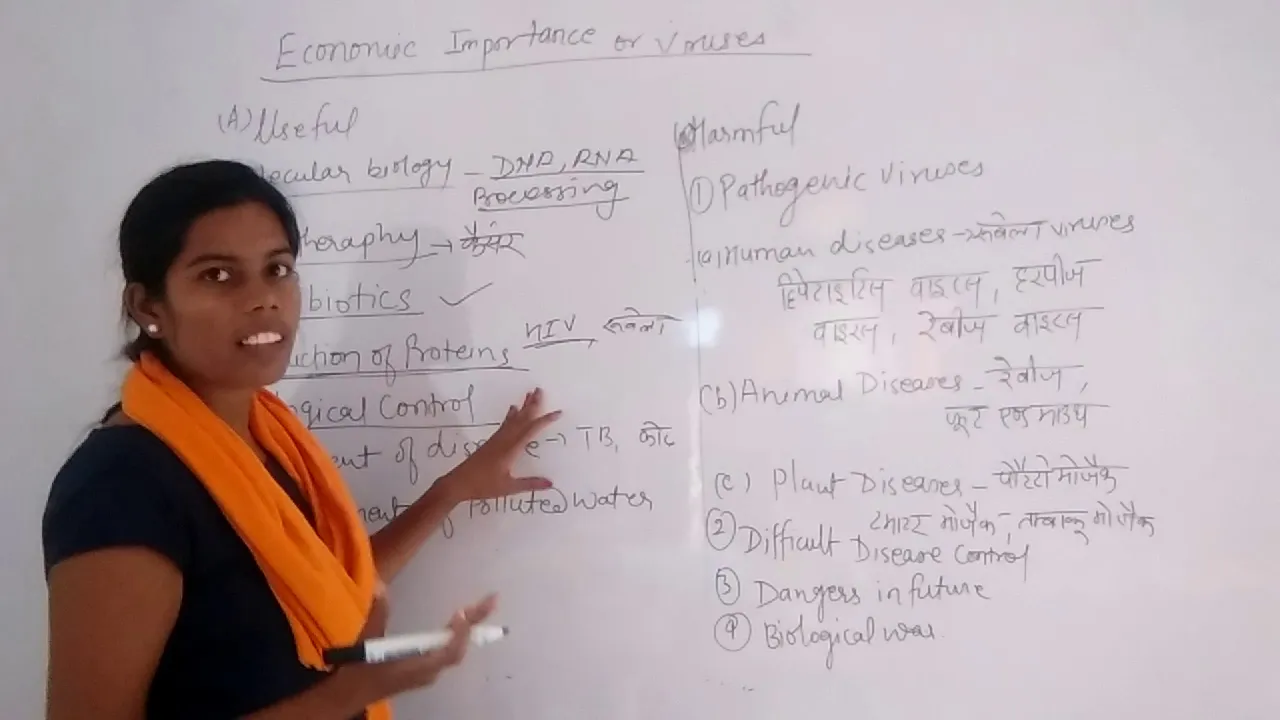 Economic Importance or Viruses
(A) Useful
lecular biology - DNA, RNA
Processing
theraphy → कैसंर
biotics ✓
uction of Proteins HIV, रूबेला
ogical Control
ent of disease → TB, कोढ
ment of Polluted Water
Harmful
① Pathogenic Viruses
(a) Human diseases - रूबेला viruses
हिपेटाइटिस वाइरस, हरपीज
वाइरस, रेबीज वाइरस
(b) Animal Diseases - रेबीज,
फूट एण्ड माउथ
(c) Plant Diseases - पोटैटो मोजैक
टमाटर मोजैक, तम्बाकू मोजैक
② Difficult Disease Control
③ Dangers in future
④ Biological war